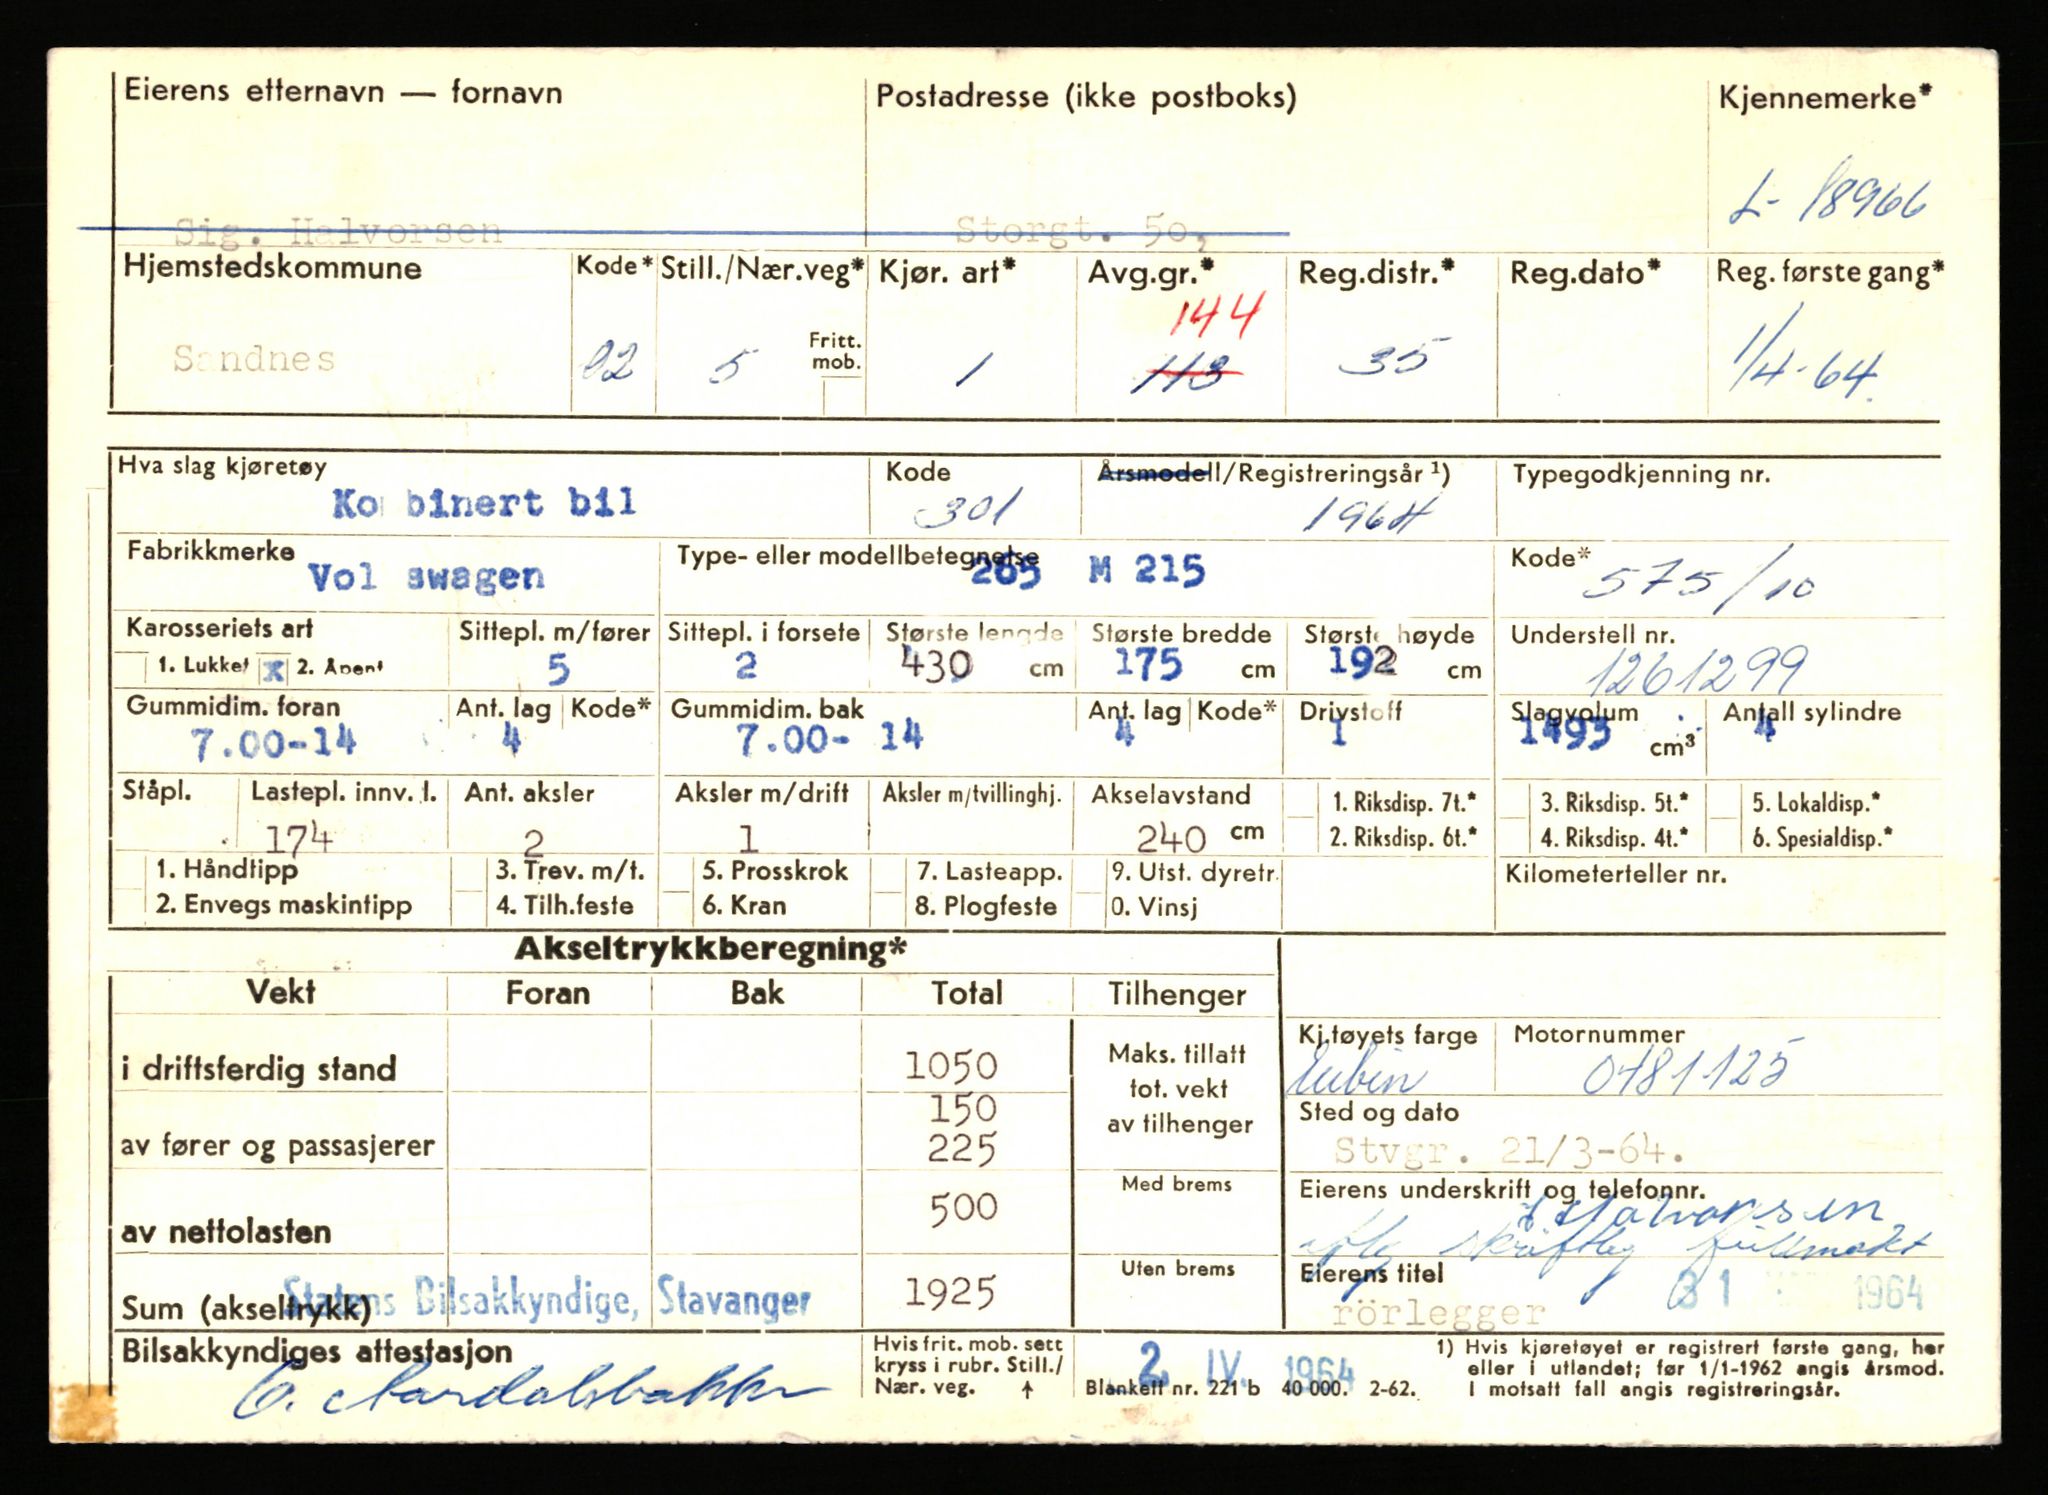 Eierens etternavn — fornavn Postadresse (ikke postboks) Kjennemerke*
L- 18966
Sig. Halvorsen Storgt. 50,
Hjemstedskommune Kode* Still./Nær.veg* Kjør. art* Avg.gr.* Reg.distr.* Reg.dato* Reg. første gang*
144
Sandnes 02 5 Fritt. mob. 1 113 35 1/4-64.
Hva slag kjøretøy Kode Årsmodell/Registreringsår ¹) Typegodkjenning nr.
Ko binert bil 301 1964
Fabrikkmerke Type- eller modellbetegnelse Kode*
Vol swagen 265 M 215 575/10
Karosseriets art Sittepl. m/fører Sittepl. i forsete Største lengde Største bredde Største høyde Understell nr.
1. Lukket x 2. Åpent 5 2 430 cm 175 cm 192 cm 1261299
Gummidim. foran Ant. lag Kode* Gummidim. bak Ant. lag Kode* Drivstoff Slagvolum Antall sylindre
7.00-14 4 7.00- 14 4 1 1493 cm³ 4
Ståpl. Lastepl. innv. l. Ant. aksler Aksler m/drift Aksler m/tvillinghj. Akselavstand 1. Riksdisp. 7t.* 3. Riksdisp. 5t.* 5. Lokaldisp.*
174 2 1 240 cm 2. Riksdisp. 6t.* 4. Riksdisp. 4t.* 6. Spesialdisp.*
1. Håndtipp 3. Trev. m/t. 5. Prosskrok 7. Lasteapp. 9. Utst. dyretr. Kilometerteller nr.
2. Envegs maskintipp 4. Tilh.feste 6. Kran 8. Plogfeste 0. Vinsj
Akseltrykkberegning*
Vekt Foran Bak Total Tilhenger
Kj.tøyets farge Motornummer
i driftsferdig stand 1050 Maks. tillatt tot. vekt av tilhenger Rubin 0181125
150 Sted og dato
av fører og passasjerer 225 Stvgr. 21/3-64.
Med brems Eierens underskrift og telefonnr.
500 Halvorsen
av nettolasten skriftlig fullmakt
Uten brems Eierens titel 31 1964
Statens Bilsakkyndige, Stavanger
Sum (akseltrykk) 1925 rörlegger
Bilsakkyndiges attestasjon Hvis frit. mob. sett kryss i rubr. Still./ Nær. veg. ↑ 2. IV. 1964
Blankett nr. 221 b 40 000. 2-62.
1) Hvis kjøretøyet er registrert første gang, her
eller i utlandet; før 1/1-1962 angis årsmod.
I motsatt fall angis registreringsår.